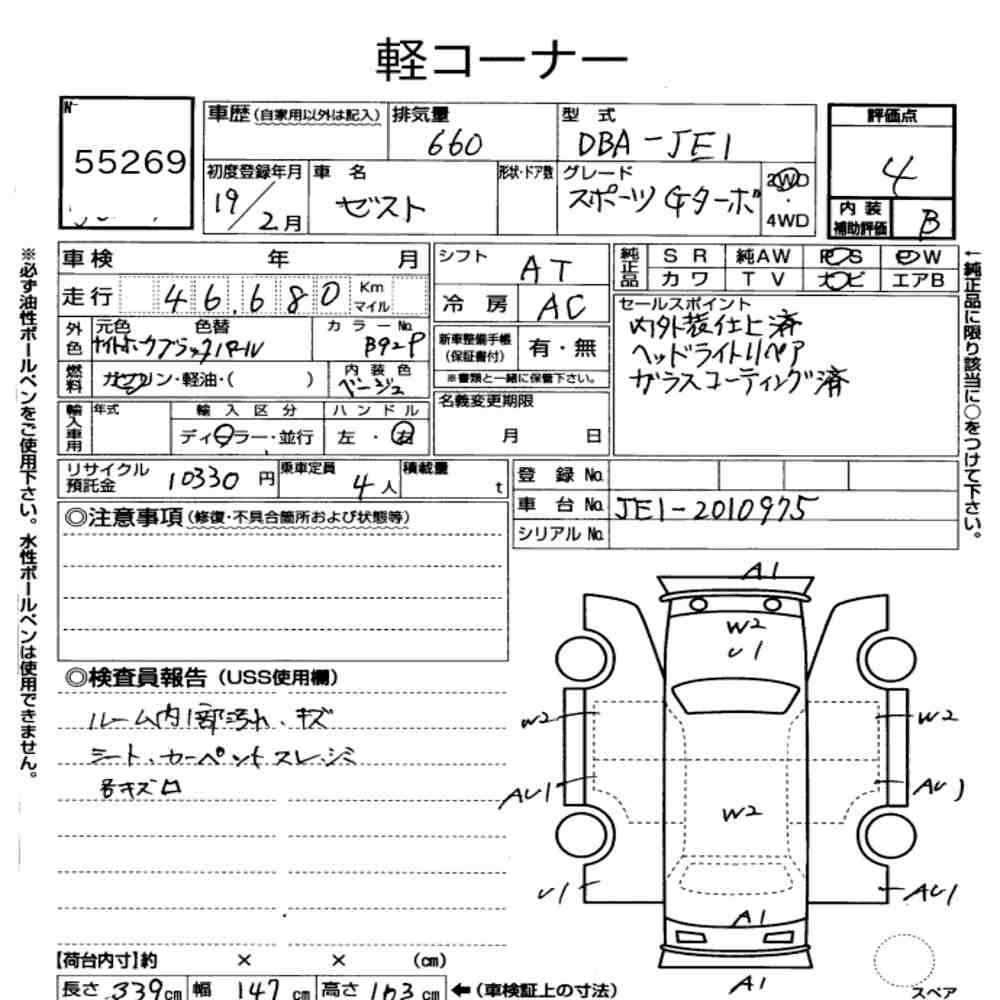 軽コーナー
No
55269
車歴(自家用以外は記入) 排気量 660 型式 DBA-JE1
評価点 4
初度登録年月 19/2月 車名 ゼスト 形状・ドア数 グレード スポーツGターボ 2WD・4WD
内装補助評価 B
車検 年 月
シフト AT
純正品 SR 純AW PS PW
カワ TV ナビ エアB
走行 46,680 Km マイル
冷房 AC
セールスポイント
内外装仕上済
ヘッドライトリペア
ガラスコーティング済
外色 元色 色替 カラーNo.
ナイトホークブラックパール B92P
新車整備手帳(保証書付) 有・無
※書類と一緒に保管下さい。
燃料 ガソリン・軽油・( ) 内装色 ベージュ
名義変更期限
月 日
輸入車用 年式 輸入区分 ハンドル
ディーラー・並行 左・右
リサイクル預託金 10330円 乗車定員 4人 積載量 t
登録No.
車台No. JE1-2010975
シリアルNo.
◎注意事項(修復・不具合箇所および状態等)
◎検査員報告(USS使用欄)
ルーム内1部汚れ、キズ
シート、カーペットスレ、シミ
各キズ凹
A1
W2
U1
W2
W2
AU1
AU1
W2
U1
AU1
A1
A1
スペア
【荷台内寸】約 × × (cm)
長さ 339cm 幅 147cm 高さ 163cm ←(車検証上の寸法)
※必ず油性ボールペンをご使用下さい。水性ボールペンは使用できません。
←純正品に限り該当に○をつけて下さい。